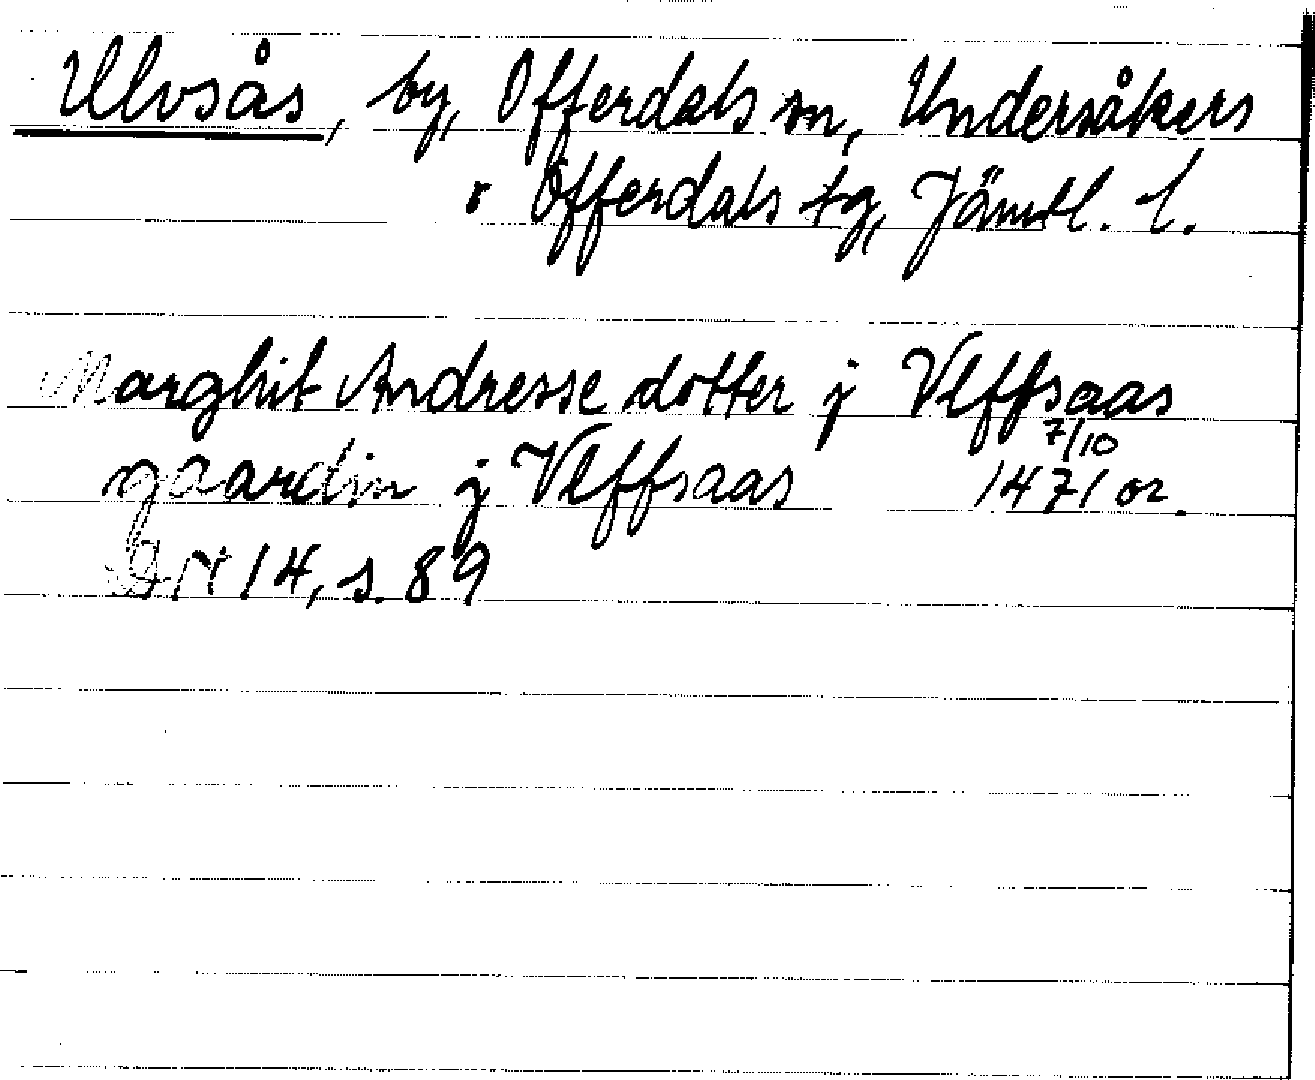 Ulvsås, by, Offerdals sn, Undersåkers
o Offerdals tg, Jämtl. l.
Marghit Andresse dotter j Vlffsaas
gaardin j Vlffsaas 7/10 1471 or.
DN 14, s. 89